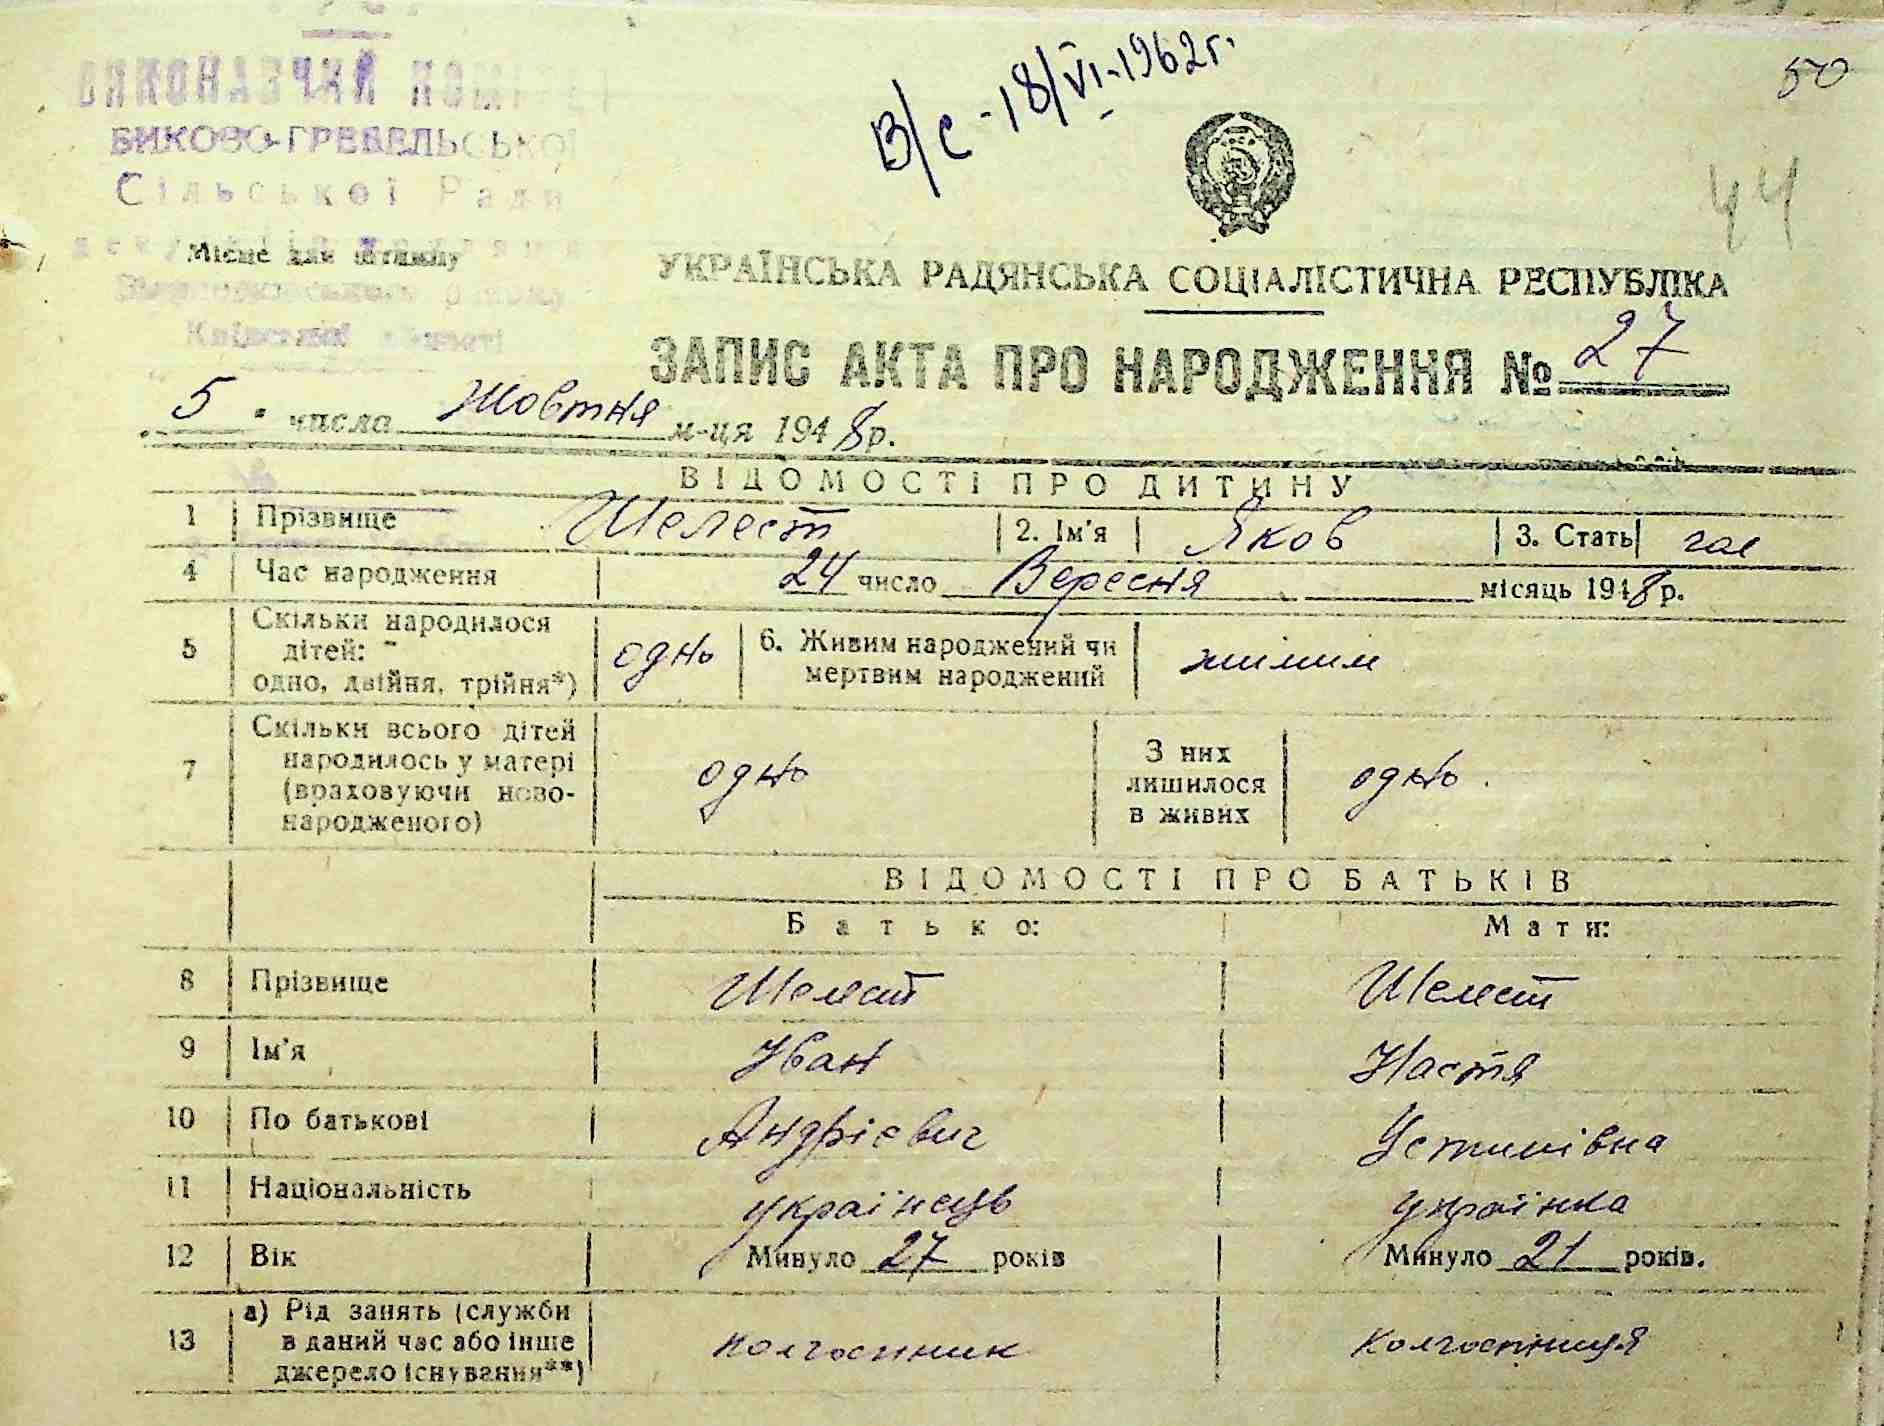 50
В/с - 18/VI-1962г.
44
ВИКОНАВЧИЙ КОМІТЕТ
БИКОВО-ГРЕБЕЛЬСЬКОЇ
Сільської Ради
Місце для штампу
Київської області
УКРАЇНСЬКА РАДЯНСЬКА СОЦІАЛІСТИЧНА РЕСПУБЛІКА
ЗАПИС АКТА ПРО НАРОДЖЕННЯ № 27
5 " числа Жовтня м-ця 1948р.
ВІДОМОСТІ ПРО ДИТИНУ
1 Прізвище Шелест 2. Ім'я Яков 3. Стать чол
4 Час народження 24 число Вересня місяць 1948р.
5 Скільки народилося дітей: одно, двійня, трійня*) одно 6. Живим народжений чи мертвим народжений живим
7 Скільки всього дітей народилось у матері (враховуючи новонародженого) одно З них лишилося в живих одно.
ВІДОМОСТІ ПРО БАТЬКІВ
Батько: Мати:
8 Прізвище Шелест Шелест
9 Ім'я Іван Настя
10 По батькові Андрієвич Устимівна
11 Національність українець українка
12 Вік Минуло 27 років Минуло 21 років.
13 а) Рід занять (служби в даний час або інше джерело існування**) колгоспник колгоспниця